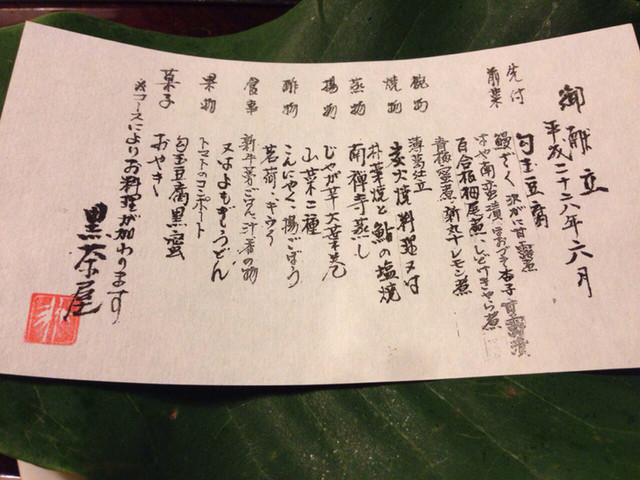 御献立
平成二十八年六月
先付 勾玉豆腐
前菜 鰻ざく 沢がに甘露煮
はや南蛮漬 杏子甘露漬
百合根梅尾煮 しどけきゃら煮
青梅蜜煮 新丸十レモン煮
椀物 薄葛仕立
焼物 炭火焼料理又は
朴葉焼と鮎の塩焼
蒸物 南禅寺蒸し
揚物 じゃが芋大葉
山菜二種
酢物 こんにゃく、揚ごぼう
茗荷・キウリ
食事 新牛蒡ごはん 汁 香の物
又はよもぎうどん
果物 トマトのコンポート
菓子 勾玉豆腐黒蜜
おやき
※コースによりお料理が加わります
黒茶屋